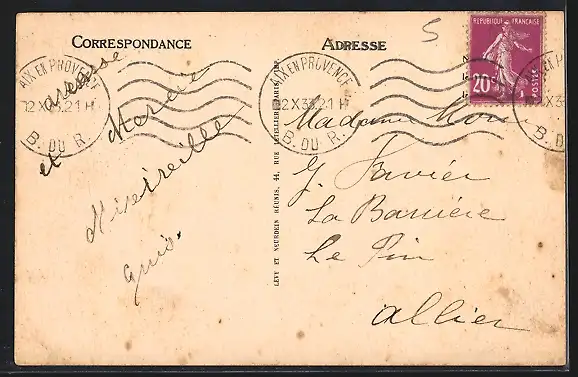 CORRESPONDANCE
ADRESSE
5
REPUBLIQUE FRANÇAISE
20c
POSTES
AIX EN PROVENCE
12 X 33 21 H
B. DU R.
AIX EN PROVENCE
12 X 33 21 H
B. DU R.
caresse
et Merci
Mireille
LEVY ET NEURDEIN RÉUNIS, 44, RUE LETELLIER, PARIS
Madame
J. Favier
La Barrière
Le Pin
Allier